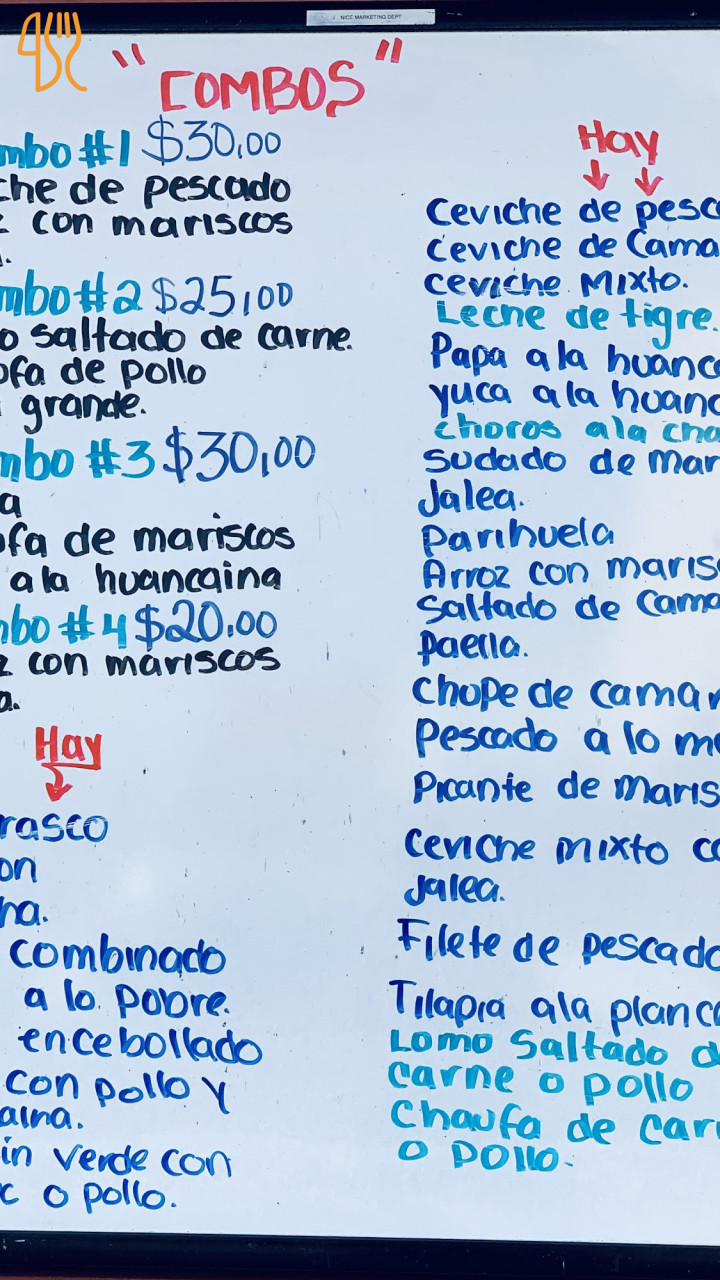 NICE MARKETING DEPT
"COMBOS"
mbo #1 $30,00
che de pescado
z con mariscos
mbo #2 $25,00
o saltado de carne.
ofa de pollo
grande.
mbo #3 $30,00
a
ofa de mariscos
a la huancaina
mbo #4 $20.00
z con mariscos
a.
Hay
rasco
on
na.
combinado
a lo pobre.
encebollado
con pollo y
aina.
in verde con
c o pollo.
Hay
Ceviche de pesc
ceviche de Cama
ceviche Mixto.
Leche de tigre.
Papa a la huanc
yuca a la huanc
choros a la cha
sudado de mar
Jalea.
Parihuela
Arroz con maris
Saltado de Cama
Paella.
Chupe de camar
Pescado a lo m
Picante de maris
Ceviche mixto co
Jalea.
Filete de pescado
Tilapia a la planc
Lomo Saltado d
carne o pollo
Chaufa de car
o pollo.